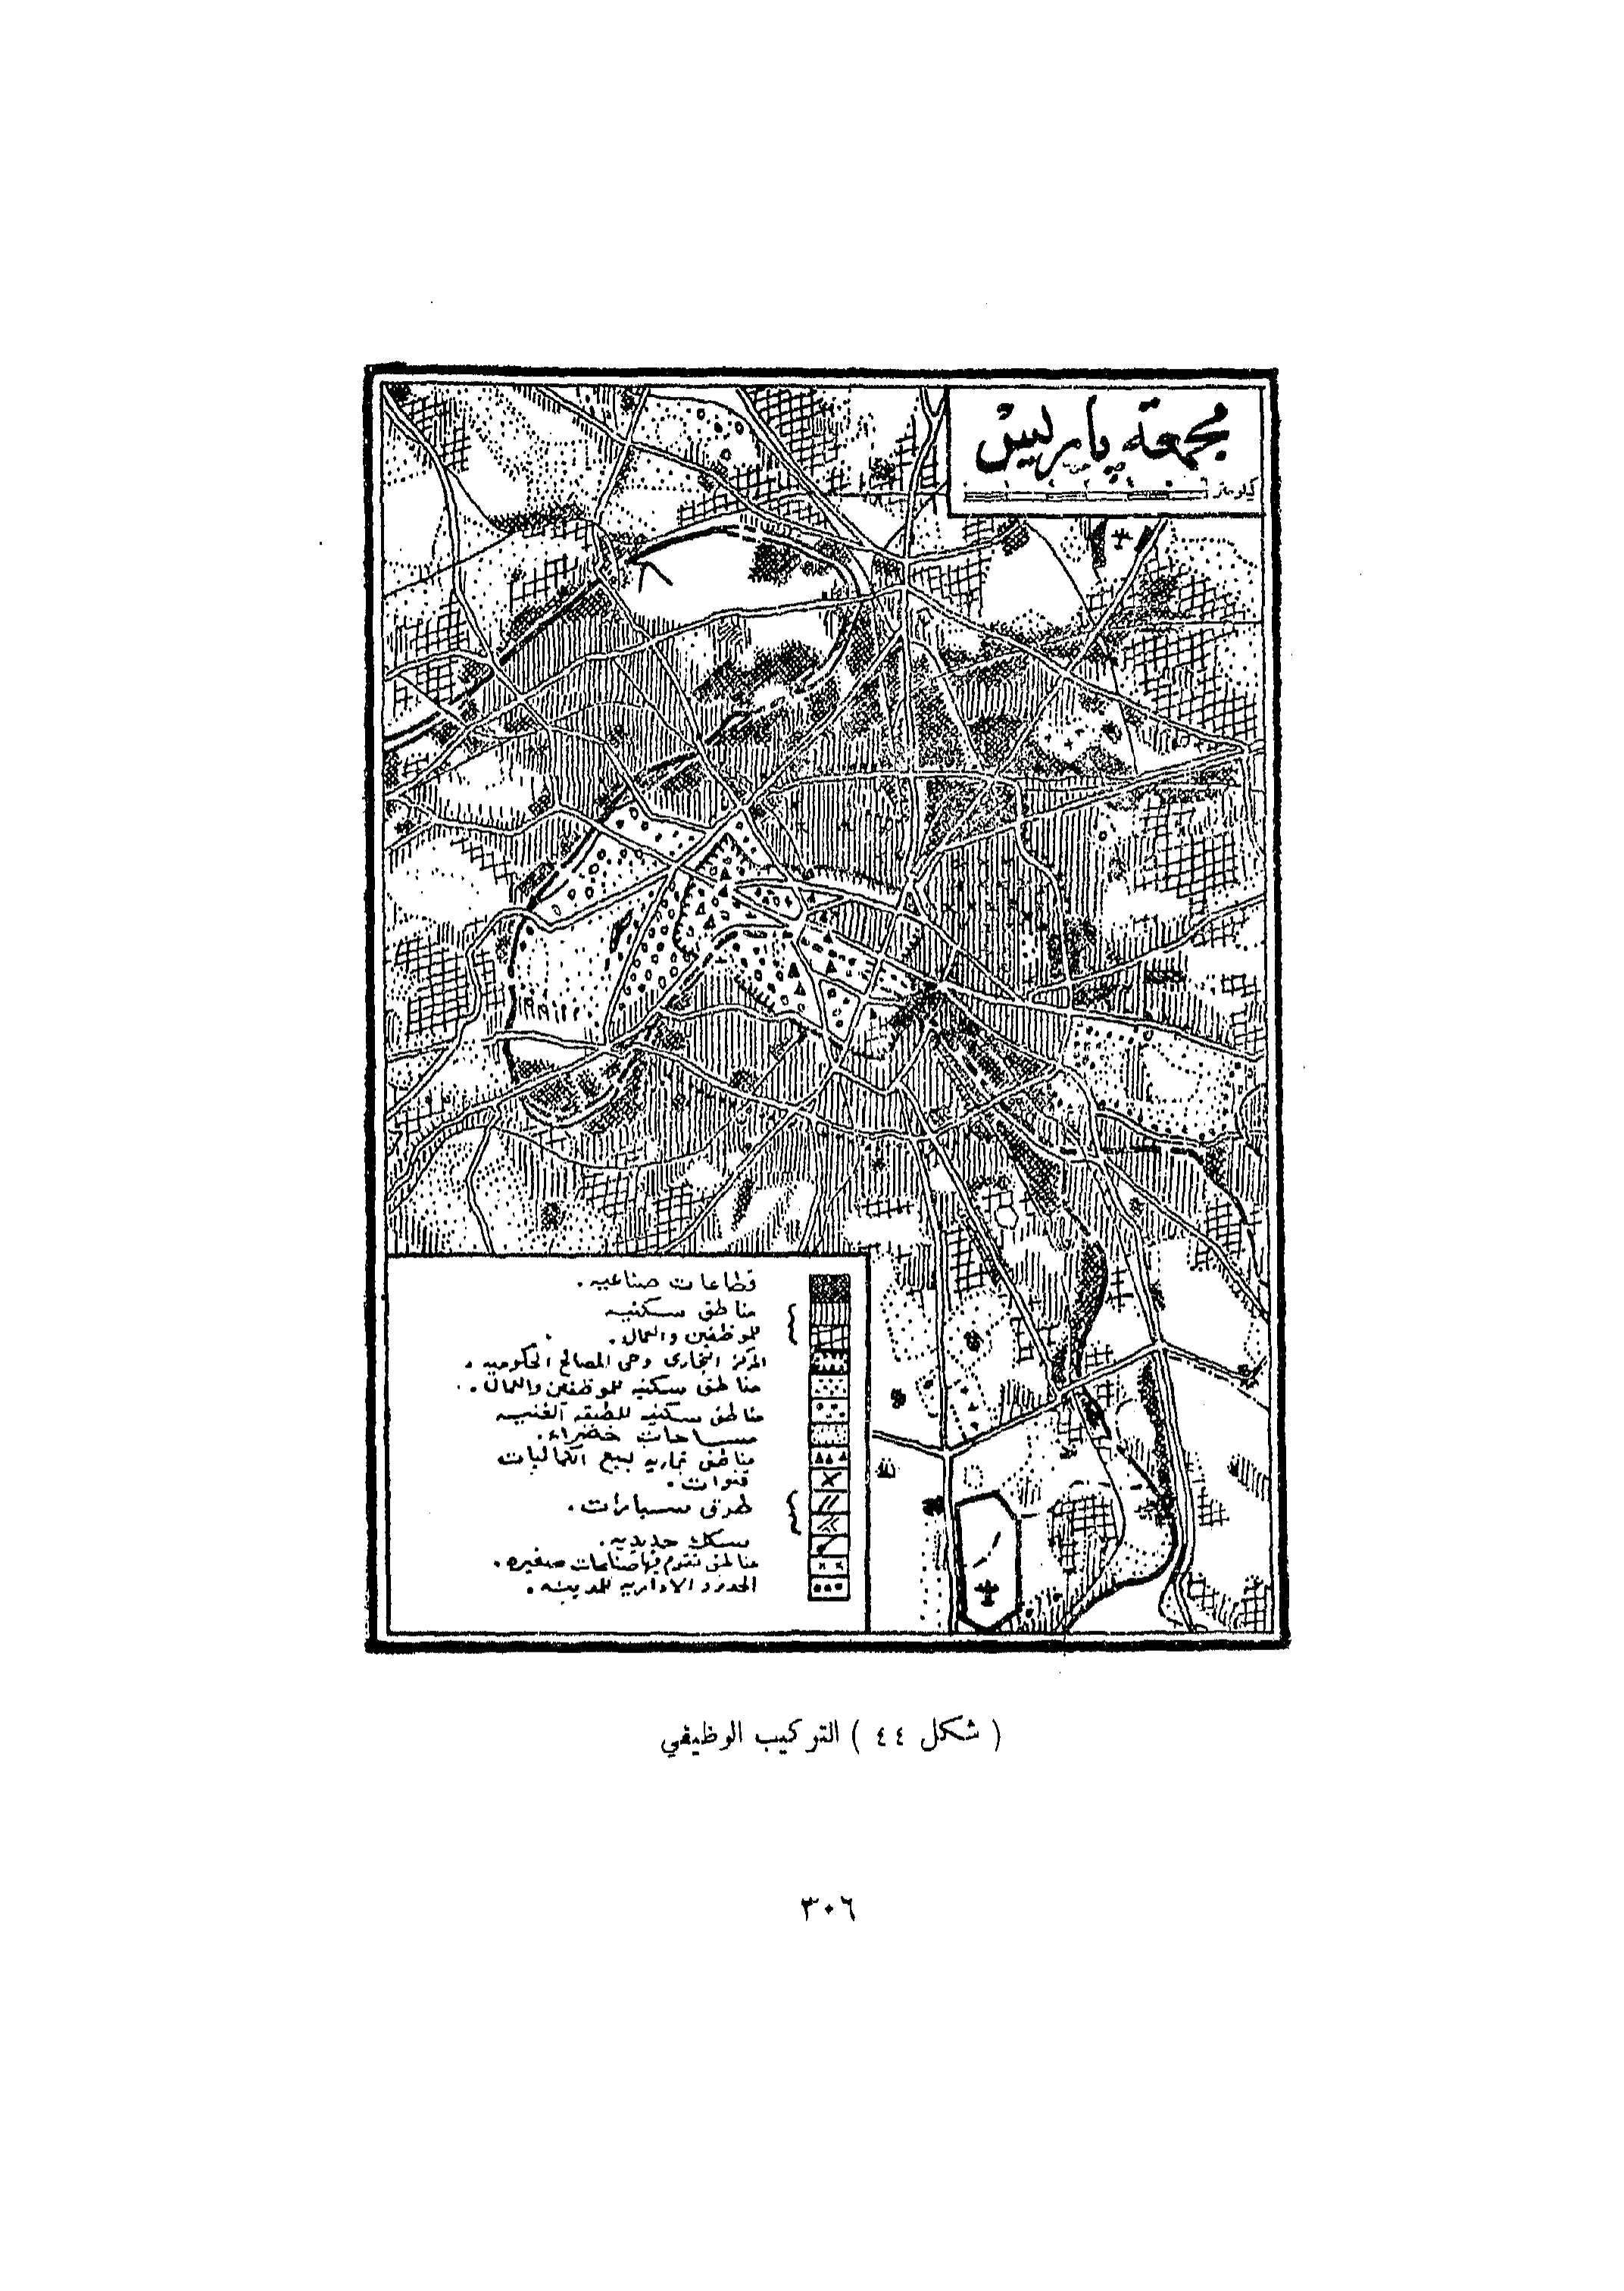 مجمعة باريس
كيلومتر
قطاعات صناعيه .
مناطق سكنيه
للموظفين والعمال .
المركز التجارى وحى المصالح الحكوميه .
مناطق سكنيه للموظفين والعمال .
مناطق سكنيه للطبقه الغنيه
مساحات خضراء .
مناطق تجاريه لبيع الكماليات
قنوات .
طرق سيارات .
سكك حديديه .
مناطق تقوم فيها صناعات صغيره .
الحدود الاداريه للمدينه .
( شكل ٤٤ ) التركيب الوظيفي
٣٠٦